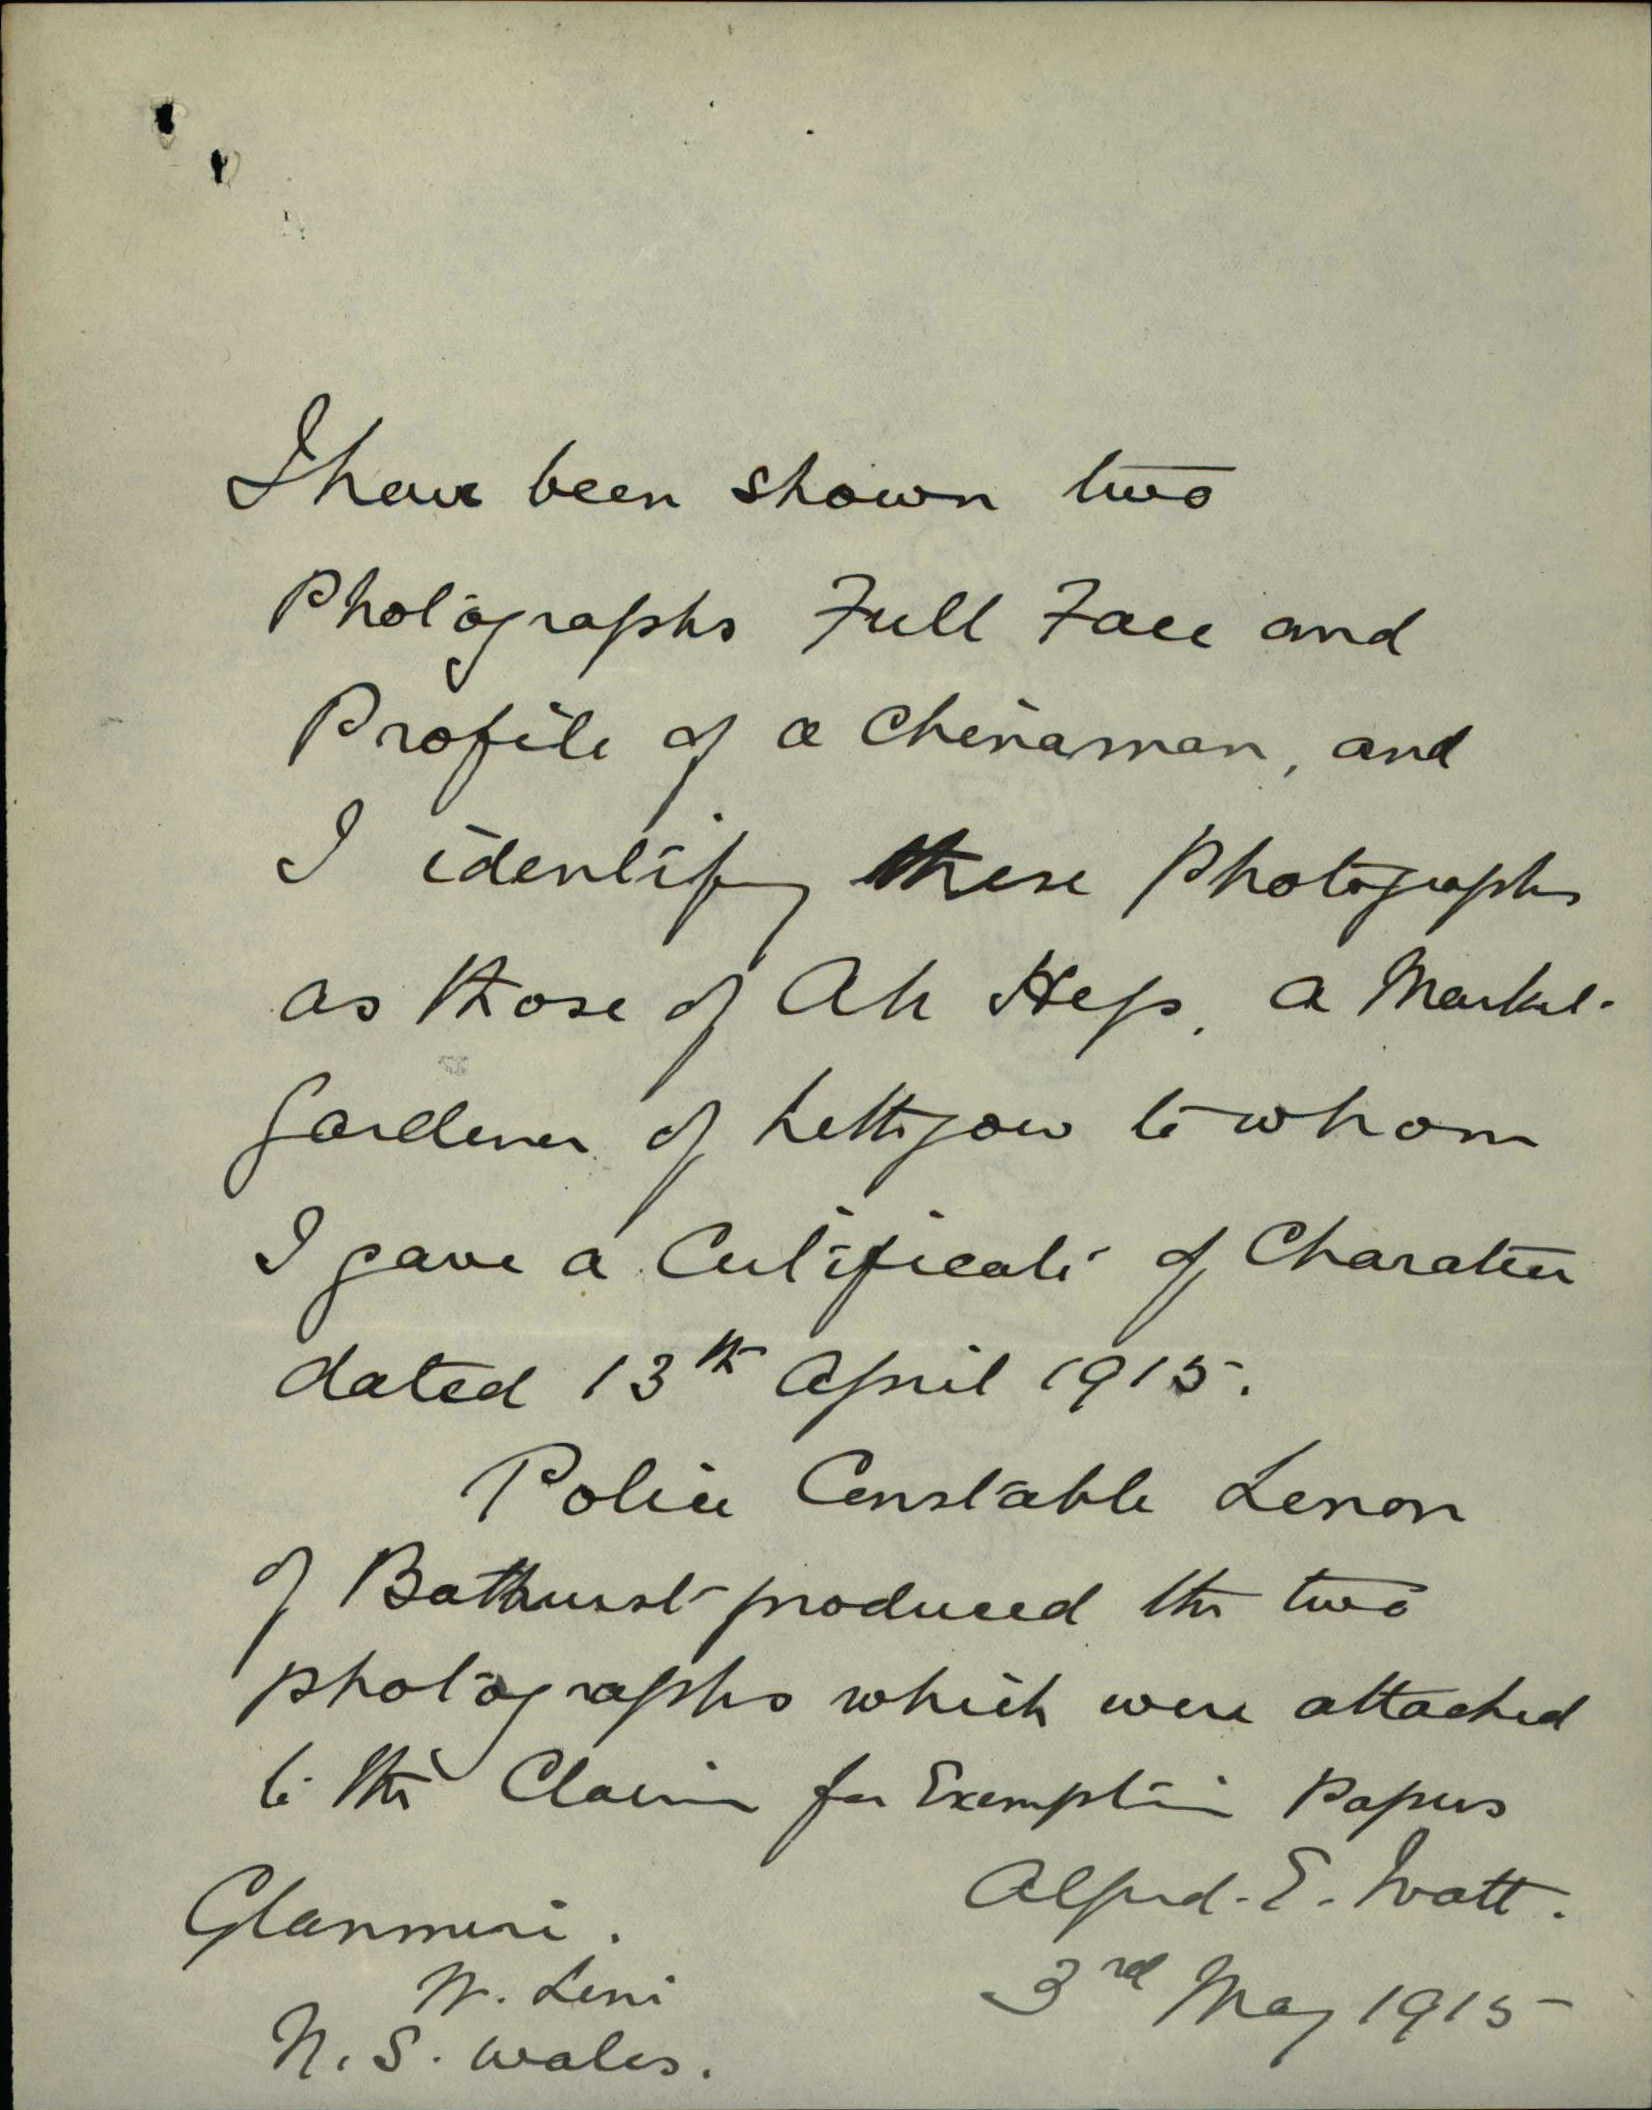 I have been shown two
Photographs Full Face and
Profile of a Chinaman, and
I identify these Photographs
as those of Ah Hep, a Market-
Gardener of Lithgow to whom
I gave a Certificate of Character
dated 13th April 1915.
Police Constable Lenon
of Bathurst produced the two
photographs which were attached
to the Claim for Exemption Papers
Alfred. E. Watt.
Glanmire.
3rd May 1915
W. Line
N. S. Wales.